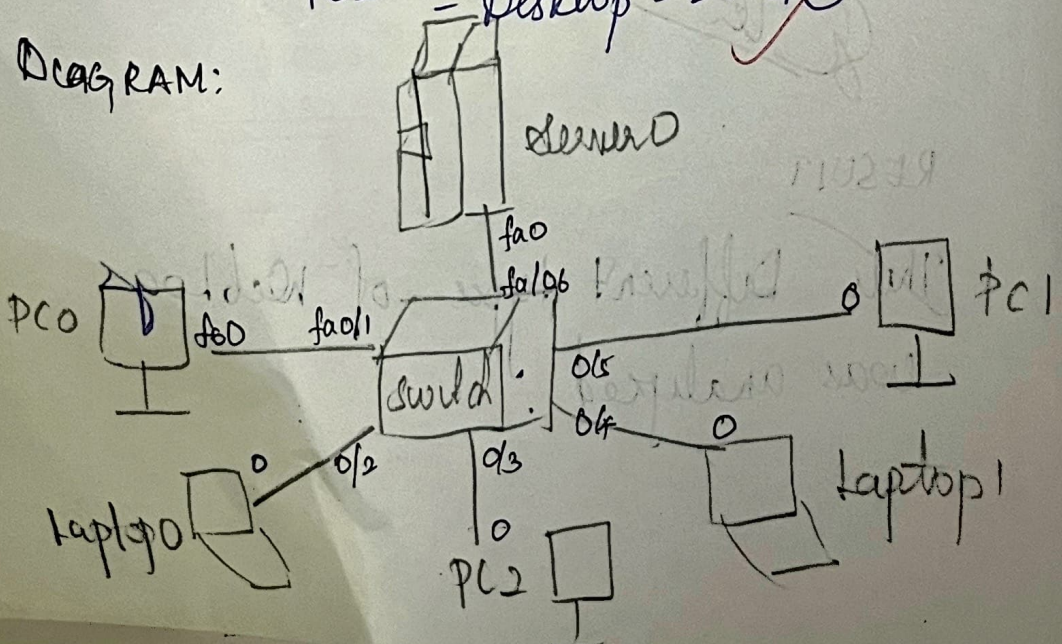 = Desktop
DIAGRAM:
Server0
fa0
fa/06
PC0
fa0
fa0/1
switch
0/5
0
PC1
0/4
0
Laptop1
0/2
0
Laptop0
0/3
0
PC2